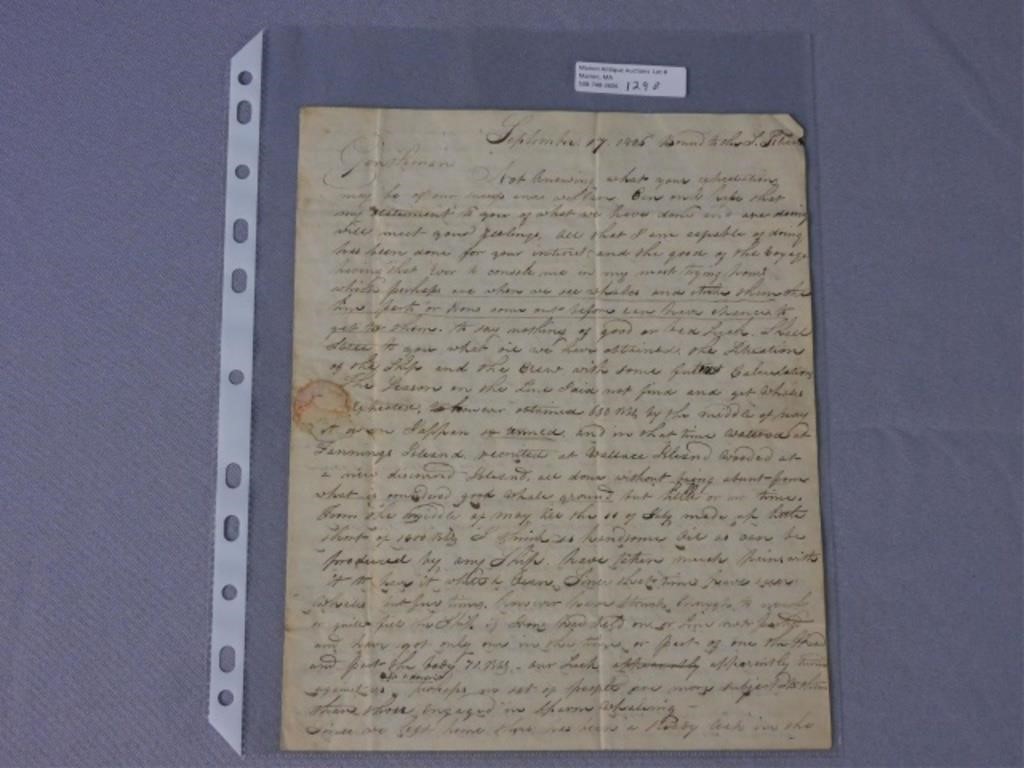 Marion Antique Auctions Lot #
Marion, MA
508 748 3606 1290
September 17, 18 Bound to the S.
Gentlemen
Not knowing what your expectation
may be of our success can only hope that
my statement to you of what we have done and are doing
will meet your feelings, all that I am capable of doing
has been done for your interest and the good of the voyage
having that ever to console me in my most trying hours
which perhaps are when we see whales and them the
or some come out before can have chance to
get to them. to say nothing of good or bad Luck. I shall
State to you what oil we have obtained, the Situation
of the Ship and the Crew with some Calculation
The Season on the Line I did not find and get whales
as however obtained 650 bbls by the middle of may
and in that time watered at
Fannings Island, recruited at Wallace Island wooded at
a new discovered Island, all done without being absent from
what is considered good whale ground but little or no time.
From the middle of may till the 10 of July made up little
short of 1600 bbls I think as handsome oil as can be
produced by any Ship. have taken much pains with
it to have it Since that time have seen
whales but few times, however have Struck Enough to
or quite fill the Ship if Irons had held on or line not parted
and have got only one in the time or part of one the Head
and part the body 70 bbls, our Luck apparently turned
against us, perhaps no set of people are more subject to
than those engaged in Sperm Whaling
Since we left home there has been a Steady leak in the